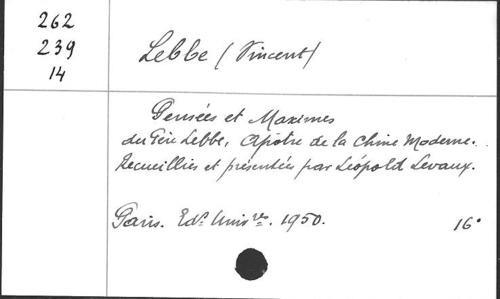 262
239
14
Lebbe (Vincent)
Pensées et Maximes
du Père Lebbe, Apôtre de la Chine Moderne.
Recueillies et présentées par Léopold Levaux.
Paris. Edns Univres. 1950. 16°